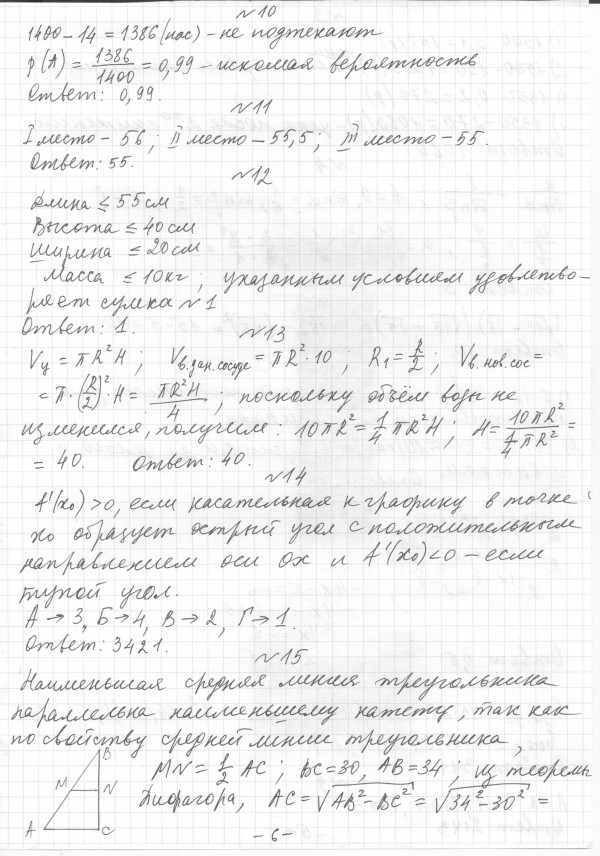 №10
1400-14=1386(нас) - не подтекают
p(A) = 1386/1400 = 0,99 - искомая вероятность
Ответ: 0,99.
№11
I место - 56; II место - 55,5; III место - 55.
Ответ: 55.
№12
Длина ≤ 55 см
Высота ≤ 40 см
Ширина ≤ 20 см
Масса ≤ 10 кг; указанным условиям удовлетво-
ряет сумка №1
Ответ: 1.
№13
Vц = πR²H; Vв.дан.сосуде = πR²·10; R₁ = R/2; Vв.нов.сос =
= π·(R/2)²·H = πR²H/4; поскольку объём воды не
изменился, получим: 10πR² = 1/4 πR²H; H = 10πR²/(1/4 πR²) =
= 40. Ответ: 40.
№14
A'(x₀) > 0, если касательная к графику в точке
x₀ образует острый угол с положительным
направлением оси Ox и A'(x₀) < 0 - если
тупой угол.
А → 3, Б → 4, В → 2, Г → 1.
Ответ: 3421.
№15
Наименьшая средняя линия треугольника
параллельна наименьшему катету, так как
по свойству средней линии треугольника,
MN = 1/2 AC; BC = 30, AB = 34; из теоремы
Пифагора, AC = √(AB² - BC²) = √(34² - 30²) =
B
M
N
A
C
- 6 -